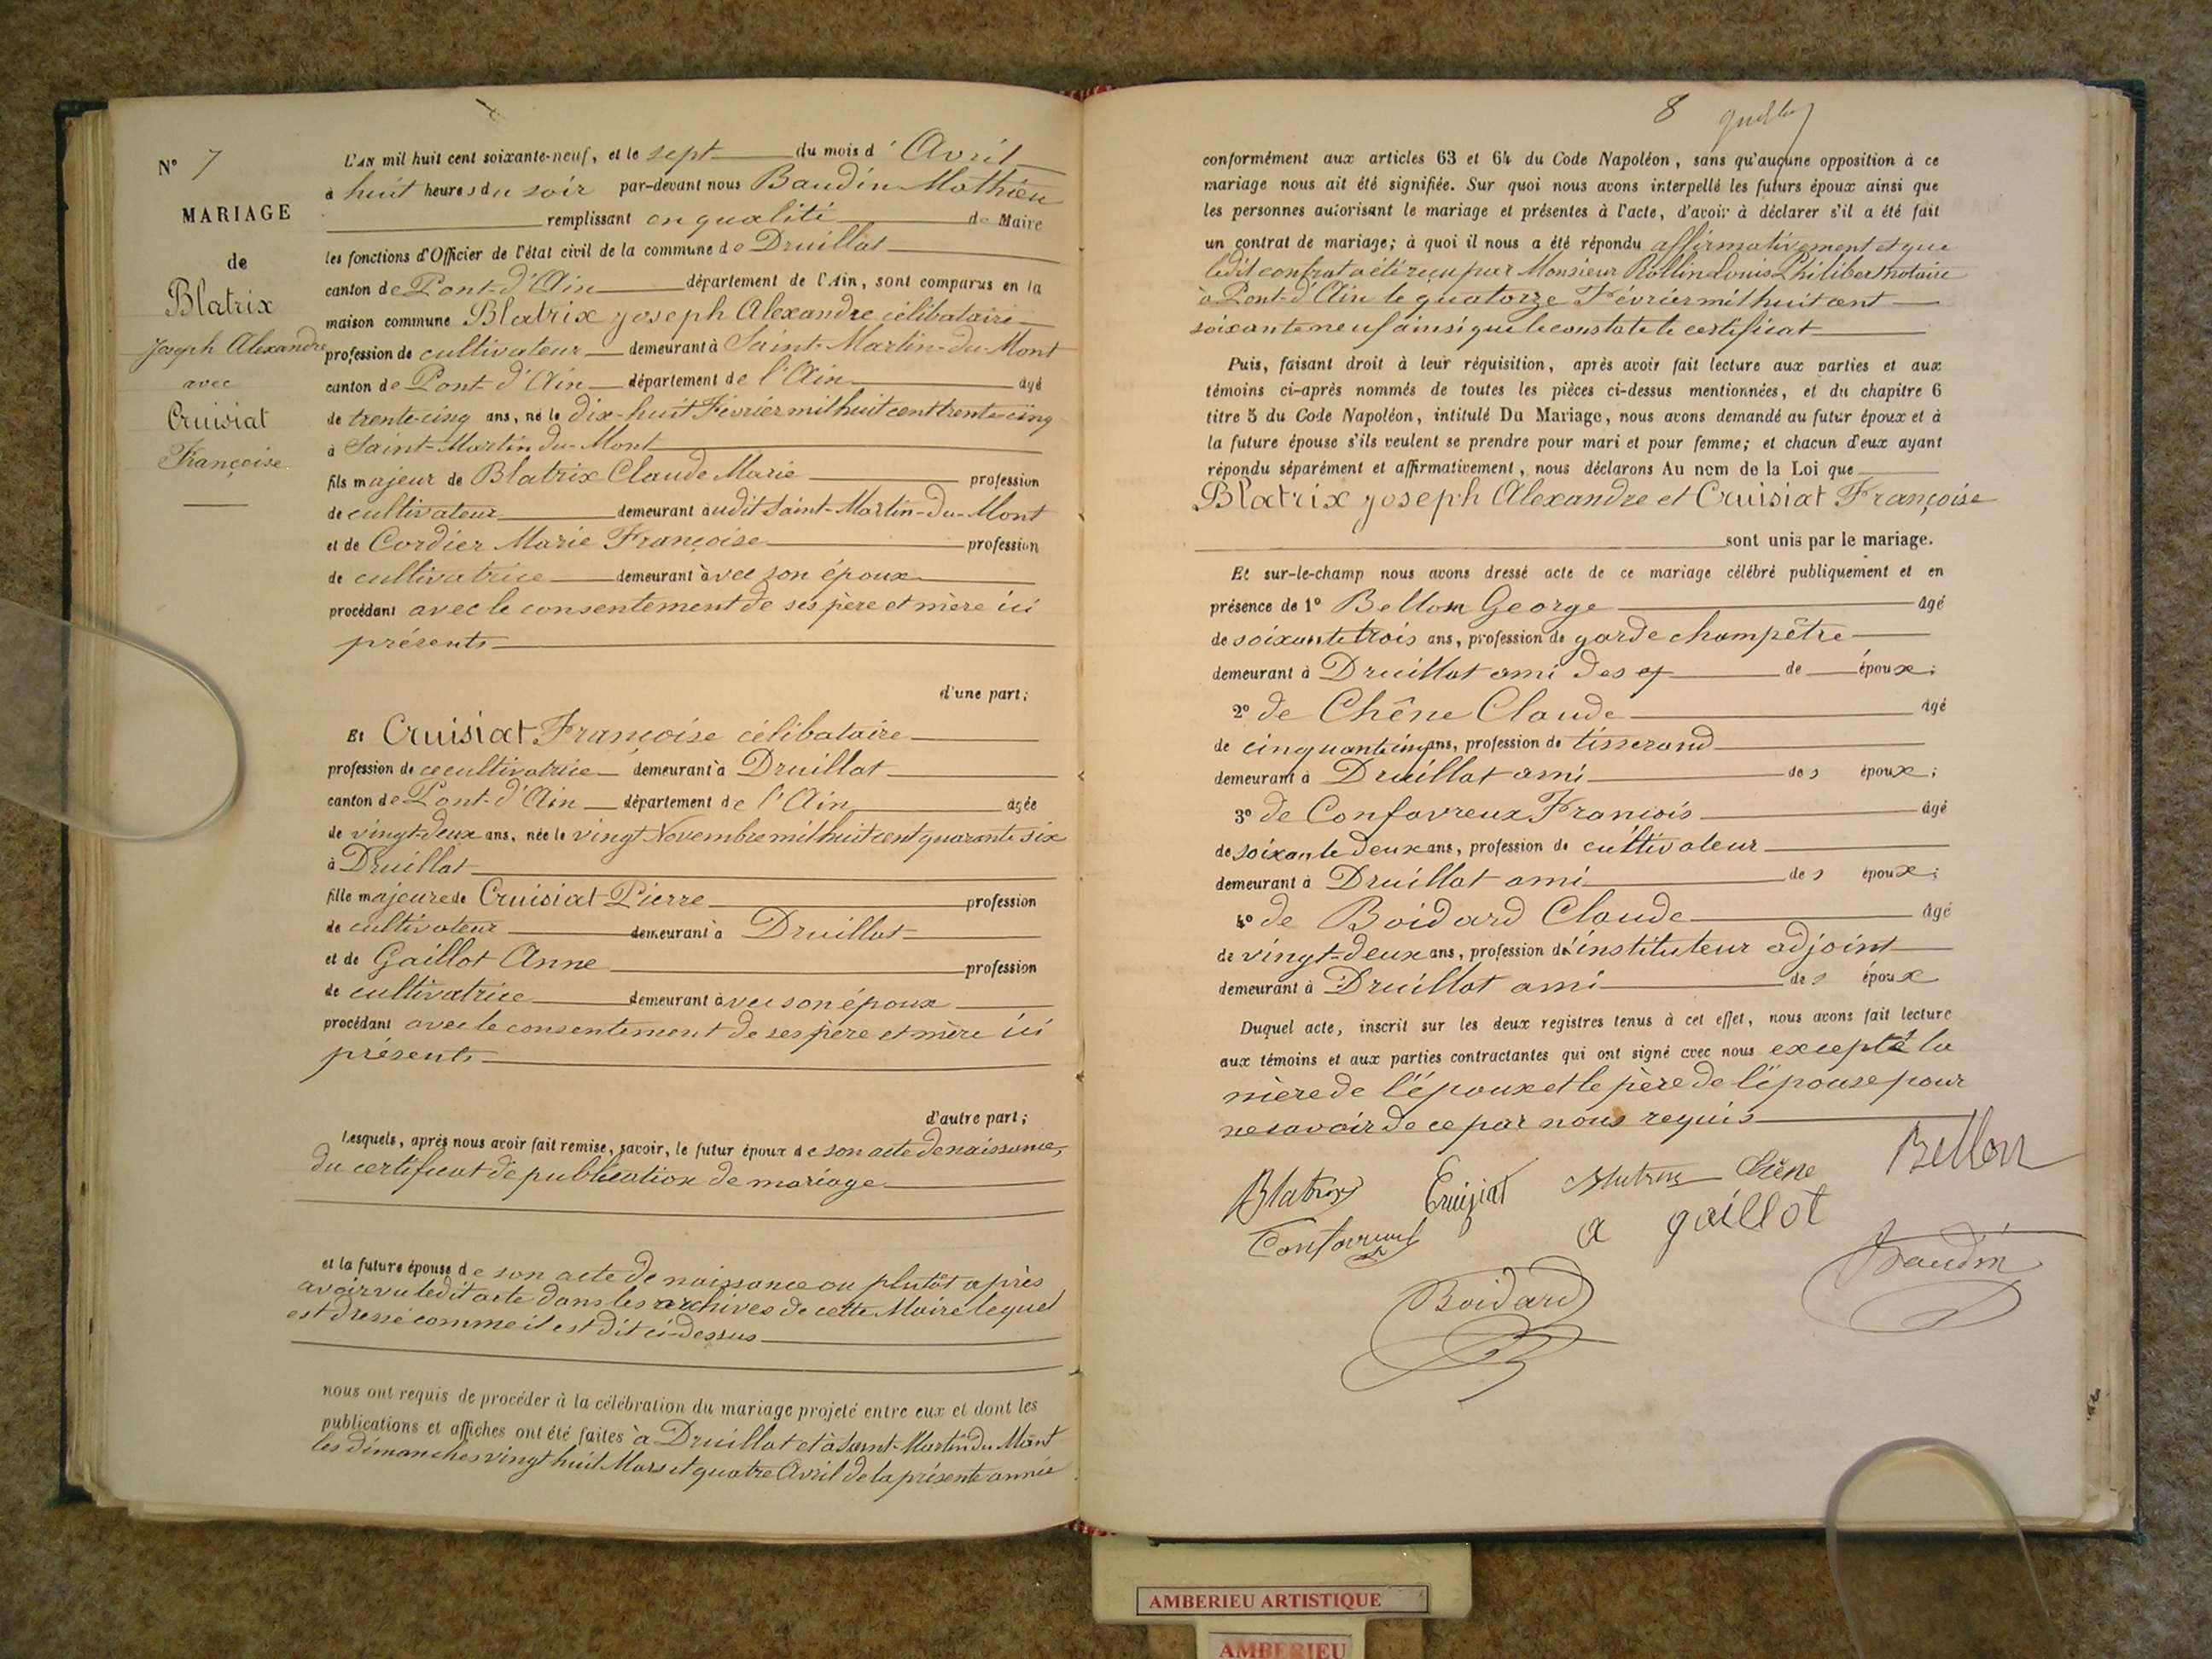 N° 7
MARIAGE
de
Blatrix
Joseph Alexandre
avec
Cruisiat
Françoise
L'AN mil huit cent soixante-neuf, et le sept du mois d'Avril
à huit heures du soir par-devant nous Baudin Mathieu
remplissant en qualité de Maire
les fonctions d'Officier de l'état civil de la commune de Druillat
canton de Pont-d'Ain département de l'Ain, sont comparus en la
maison commune Blatrix Joseph Alexandre célibataire
profession de cultivateur demeurant à Saint-Martin-du-Mont
canton de Pont-d'Ain département de l'Ain âgé
de trente-cinq ans, né le dix-huit Février mil huit cent trente-cinq
à Saint-Martin du-Mont
fils majeur de Blatrix Claude Marie profession
de cultivateur demeurant audit Saint-Martin-du-Mont
et de Cordier Marie Françoise profession
de cultivatrice demeurant avec son époux
procédant avec le consentement de ses père et mère ici
présents
d'une part;
Et Cruisiat Françoise célibataire
profession de cultivatrice demeurant à Druillat
canton de Pont-d'Ain département de l'Ain âgée
de vingt-deux ans, née le vingt Novembre mil huit cent quarante six
à Druillat
fille majeure de Cruisiat Pierre profession
de cultivateur demeurant à Druillat
et de Gaillot Anne profession
de cultivatrice demeurant avec son époux
procédant avec le consentement de ses père et mère ici
présents
d'autre part;
Lesquels, après nous avoir fait remise, savoir, le futur époux de son acte de naissance,
du certificat de publication de mariage
et la future épouse de son acte de naissance ou plutôt après
avoir vu ledit acte dans les archives de cette Mairie lequel
est dressé comme il est dit ci-dessus
nous ont requis de procéder à la célébration du mariage projeté entre eux et dont les
publications et affiches ont été faites à Druillat et à Saint-Martin du Mont
les dimanches vingt huit Mars et quatre Avril de la présente année
8
conformément aux articles 63 et 64 du Code Napoléon, sans qu'aucune opposition à ce
mariage nous ait été signifiée. Sur quoi nous avons interpellé les futurs époux ainsi que
les personnes autorisant le mariage et présentes à l'acte, d'avoir à déclarer s'il a été fait
un contrat de mariage; à quoi il nous a été répondu affirmativement et que
ledit contrat a été reçu par Monsieur Rollin Louis Philibert notaire
à Pont-d'Ain le quatorze Février mil huit cent
soixante neuf ainsi que le constate le certificat
Puis, faisant droit à leur réquisition, après avoir fait lecture aux parties et aux
témoins ci-après nommés de toutes les pièces ci-dessus mentionnées, et du chapitre 6
titre 5 du Code Napoléon, intitulé Du Mariage, nous avons demandé au futur époux et à
la future épouse s'ils veulent se prendre pour mari et pour femme; et chacun d'eux ayant
répondu séparément et affirmativement, nous déclarons Au nom de la Loi que
Blatrix Joseph Alexandre et Cruisiat Françoise
sont unis par le mariage.
Et sur-le-champ nous avons dressé acte de ce mariage célébré publiquement et en
présence de 1° Bellon George âgé
de soixante trois ans, profession de garde champêtre
demeurant à Druillat ami des de époux;
2° de Chêne Claude âgé
de cinquante cinq ans, profession de tisserand
demeurant à Druillat ami des époux;
3° de Confavreux François âgé
de soixante deux ans, profession de cultivateur
demeurant à Druillat ami des époux;
4° de Boidard Claude âgé
de vingt-deux ans, profession d'instituteur adjoint
demeurant à Druillat ami des époux
Duquel acte, inscrit sur les deux registres tenus à cet effet, nous avons fait lecture
aux témoins et aux parties contractantes qui ont signé avec nous excepté la
mère de l'époux et le père de l'épouse pour
ne savoir de ce par nous requis
Blatrix Cruiziat Chêne Bellon
Confavreux a gaillot
Baudin
Boidard
AMBERIEU ARTISTIQUE
AMBERIEU